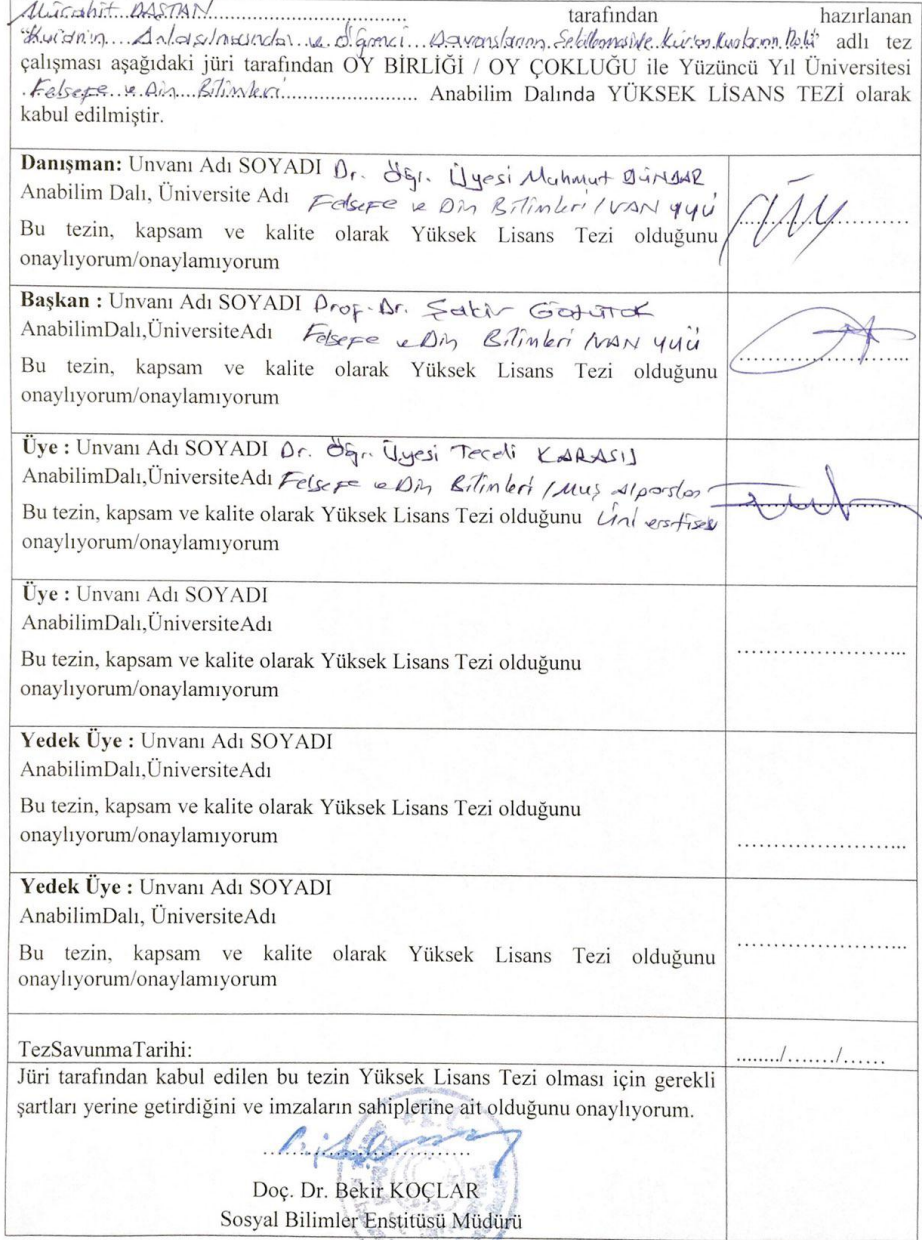 Mücahit DASTAN.............................. tarafından hazırlanan
"Kur'an'ın Anlaşılmasında ve Öğrenci Davranışlarının Şekillenmesinde Kur'an Kurslarının Rolü" adlı tez
çalışması aşağıdaki jüri tarafından OY BİRLİĞİ / OY ÇOKLUĞU ile Yüzüncü Yıl Üniversitesi
Felsefe ve Din Bilimleri................... Anabilim Dalında YÜKSEK LİSANS TEZİ olarak
kabul edilmiştir.
Danışman: Unvanı Adı SOYADI Dr. Öğr. Üyesi Mahmut DÜNDAR
Anabilim Dalı, Üniversite Adı Felsefe ve Din Bilimleri / VAN YYÜ
Bu tezin, kapsam ve kalite olarak Yüksek Lisans Tezi olduğunu
onaylıyorum/onaylamıyorum
Başkan : Unvanı Adı SOYADI Prof. Dr. Şakir GÖZÜTOK
AnabilimDalı,ÜniversiteAdı Felsefe ve Din Bilimleri / VAN YYÜ
Bu tezin, kapsam ve kalite olarak Yüksek Lisans Tezi olduğunu
onaylıyorum/onaylamıyorum
Üye : Unvanı Adı SOYADI Dr. Öğr. Üyesi Teceli KARASU
AnabilimDalı,ÜniversiteAdı Felsefe ve Din Bilimleri / Muş Alparslan
Bu tezin, kapsam ve kalite olarak Yüksek Lisans Tezi olduğunu Üniversitesi
onaylıyorum/onaylamıyorum
Üye : Unvanı Adı SOYADI
AnabilimDalı,ÜniversiteAdı
Bu tezin, kapsam ve kalite olarak Yüksek Lisans Tezi olduğunu
onaylıyorum/onaylamıyorum
Yedek Üye : Unvanı Adı SOYADI
AnabilimDalı,ÜniversiteAdı
Bu tezin, kapsam ve kalite olarak Yüksek Lisans Tezi olduğunu
onaylıyorum/onaylamıyorum
Yedek Üye : Unvanı Adı SOYADI
AnabilimDalı, ÜniversiteAdı
Bu tezin, kapsam ve kalite olarak Yüksek Lisans Tezi olduğunu
onaylıyorum/onaylamıyorum
TezSavunmaTarihi: ......../......./......
Jüri tarafından kabul edilen bu tezin Yüksek Lisans Tezi olması için gerekli
şartları yerine getirdiğini ve imzaların sahiplerine ait olduğunu onaylıyorum.
Doç. Dr. Bekir KOÇLAR
Sosyal Bilimler Enstitüsü Müdürü